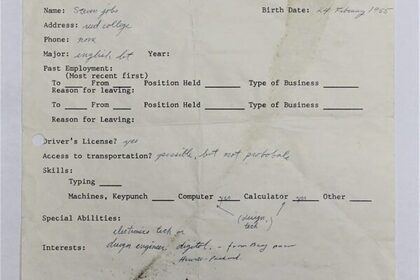 Name: Steven jobs Birth Date: 24 February 1955
Address: reed college
Phone: none
Major: english lit Year:
Past Employment:
(Most recent first)
To From Position Held Type of Business
Reason for leaving:
To From Position Held Type of Business
Reason for Leaving:
Driver's License? yes
Access to transportation? possible, but not probable
Skills:
Typing
Machines, Keypunch Computer yes Calculator yes Other
(design, tech)
Special Abilities:
electronics tech or
Interests: design engineer. digital. — from Bay near
Hewitt-Packard